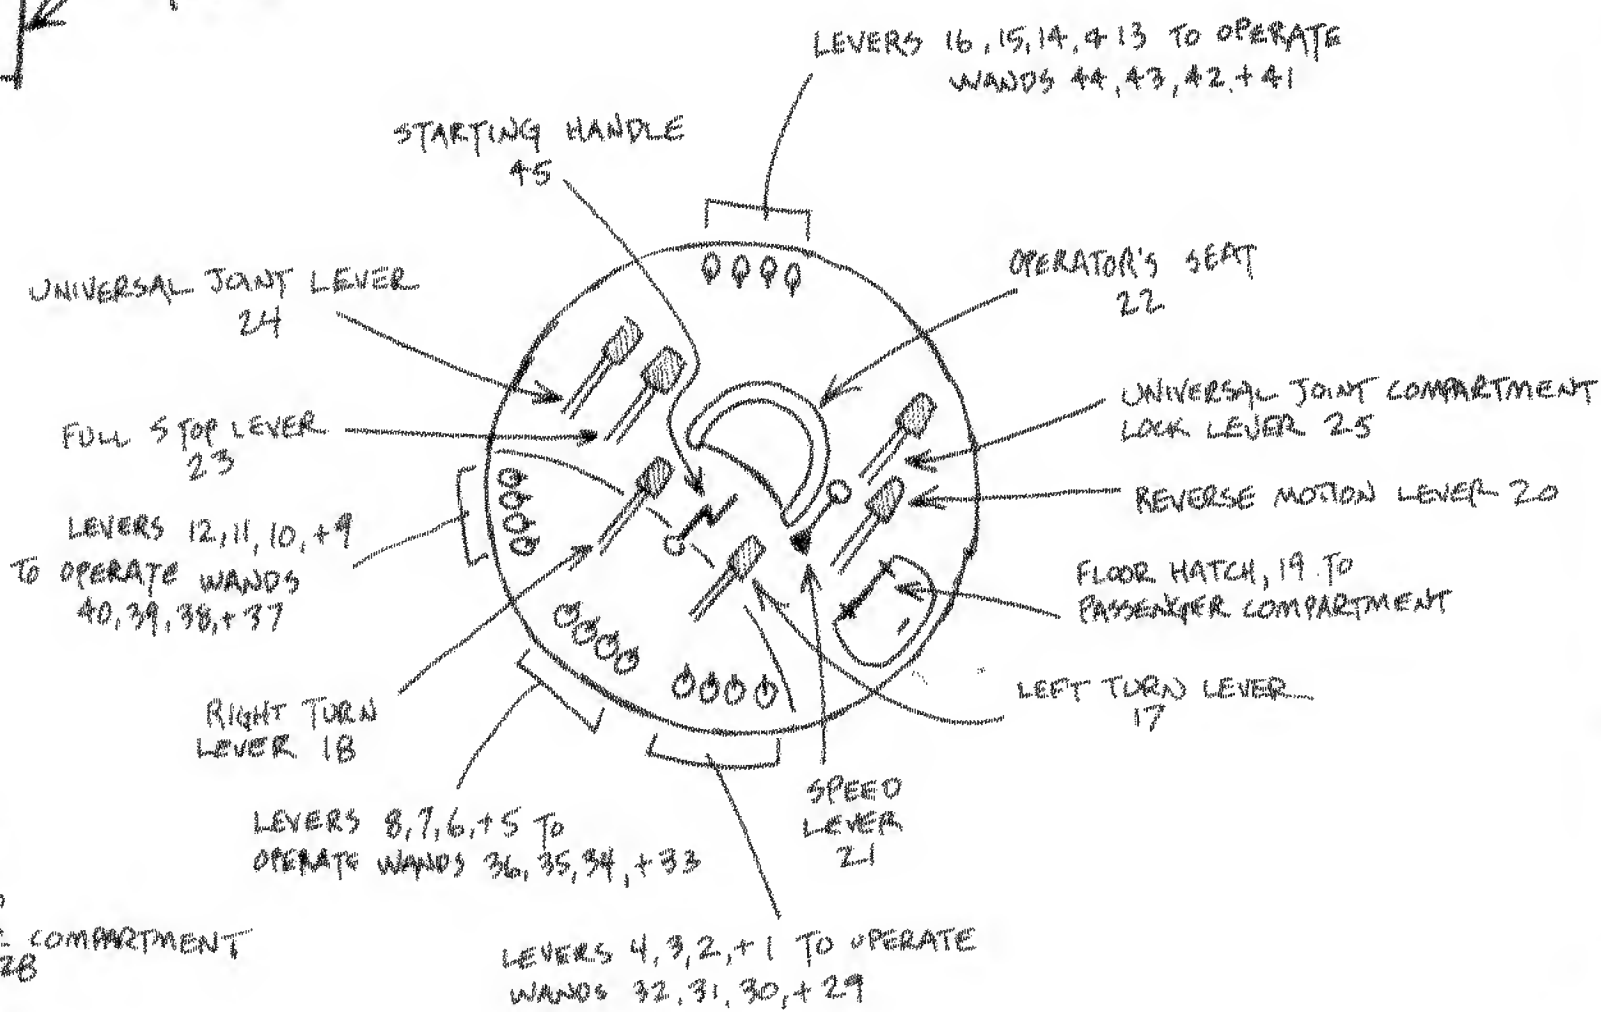 LEVERS 16, 15, 14, + 13 TO OPERATE
WANDS 44, 43, 42, + 41
STARTING HANDLE
45
OPERATOR'S SEAT
22
UNIVERSAL JOINT LEVER
24
UNIVERSAL JOINT COMPARTMENT
LOCK LEVER 25
FULL STOP LEVER
23
REVERSE MOTION LEVER 20
LEVERS 12, 11, 10, + 9
TO OPERATE WANDS
40, 39, 38, + 37
FLOOR HATCH, 19 TO
PASSENGER COMPARTMENT
LEFT TURN LEVER
17
RIGHT TURN
LEVER 18
SPEED
LEVER
21
LEVERS 8, 7, 6, + 5 TO
OPERATE WANDS 36, 35, 34, + 33
COMPARTMENT
28
LEVERS 4, 3, 2, + 1 TO OPERATE
WANDS 32, 31, 30, + 29